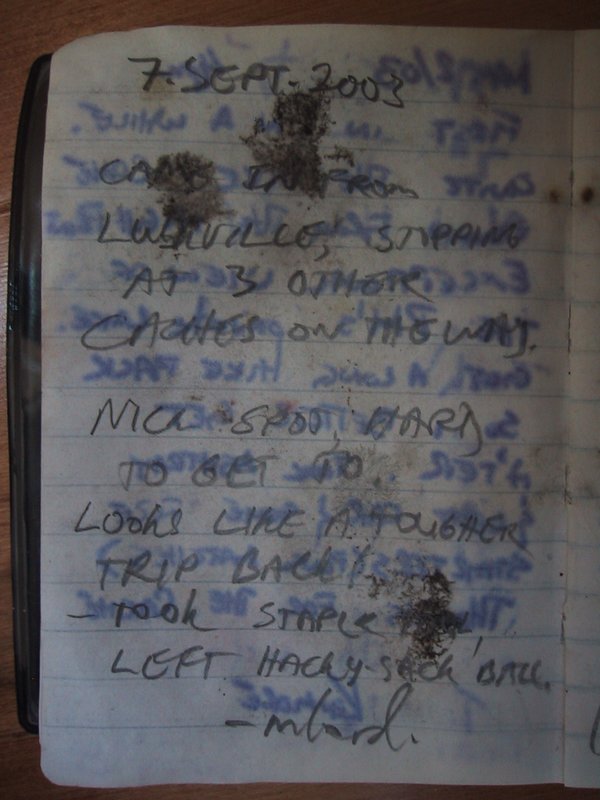 7. SEPT. 2003
CAME IN FROM
STOPPING
AT 3 OTHER
CACHES ON THE WAY.
NICE SPOT, HARD
TO GET TO.
LOOKS LIKE A TOUGHER
TRIP BACK!
- TOOK STAPLE
LEFT HACKY-SACK BALL.